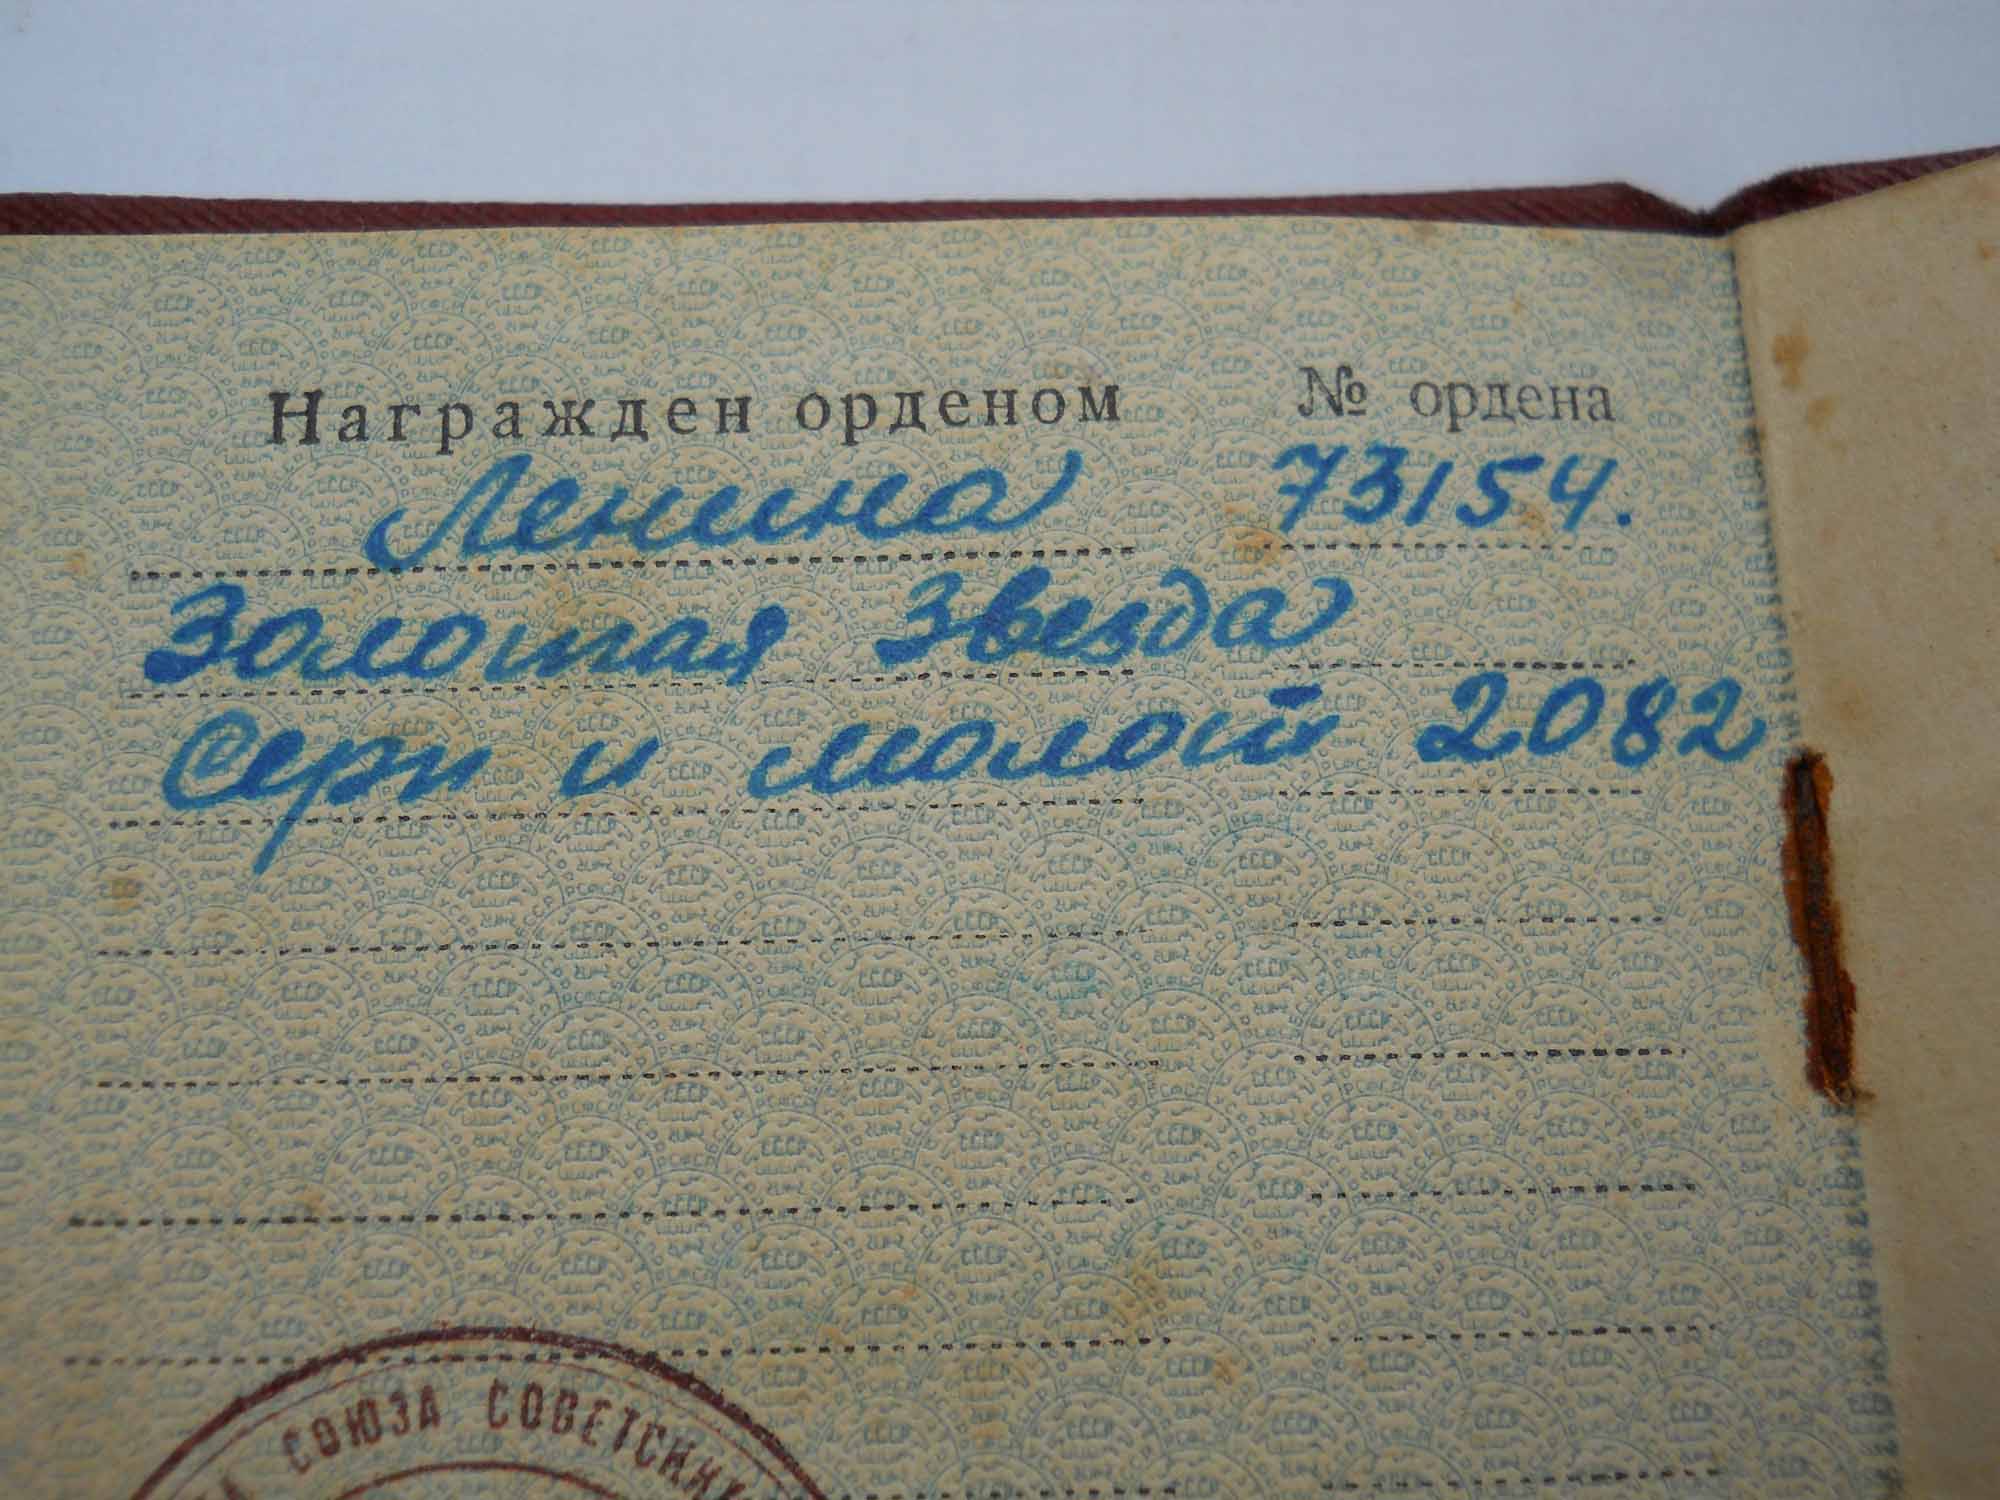 Награжден орденом № ордена
Ленина 73154.
Золотая Звезда
Серп и молот 2082
СОЮЗА СОВЕТСКИХ